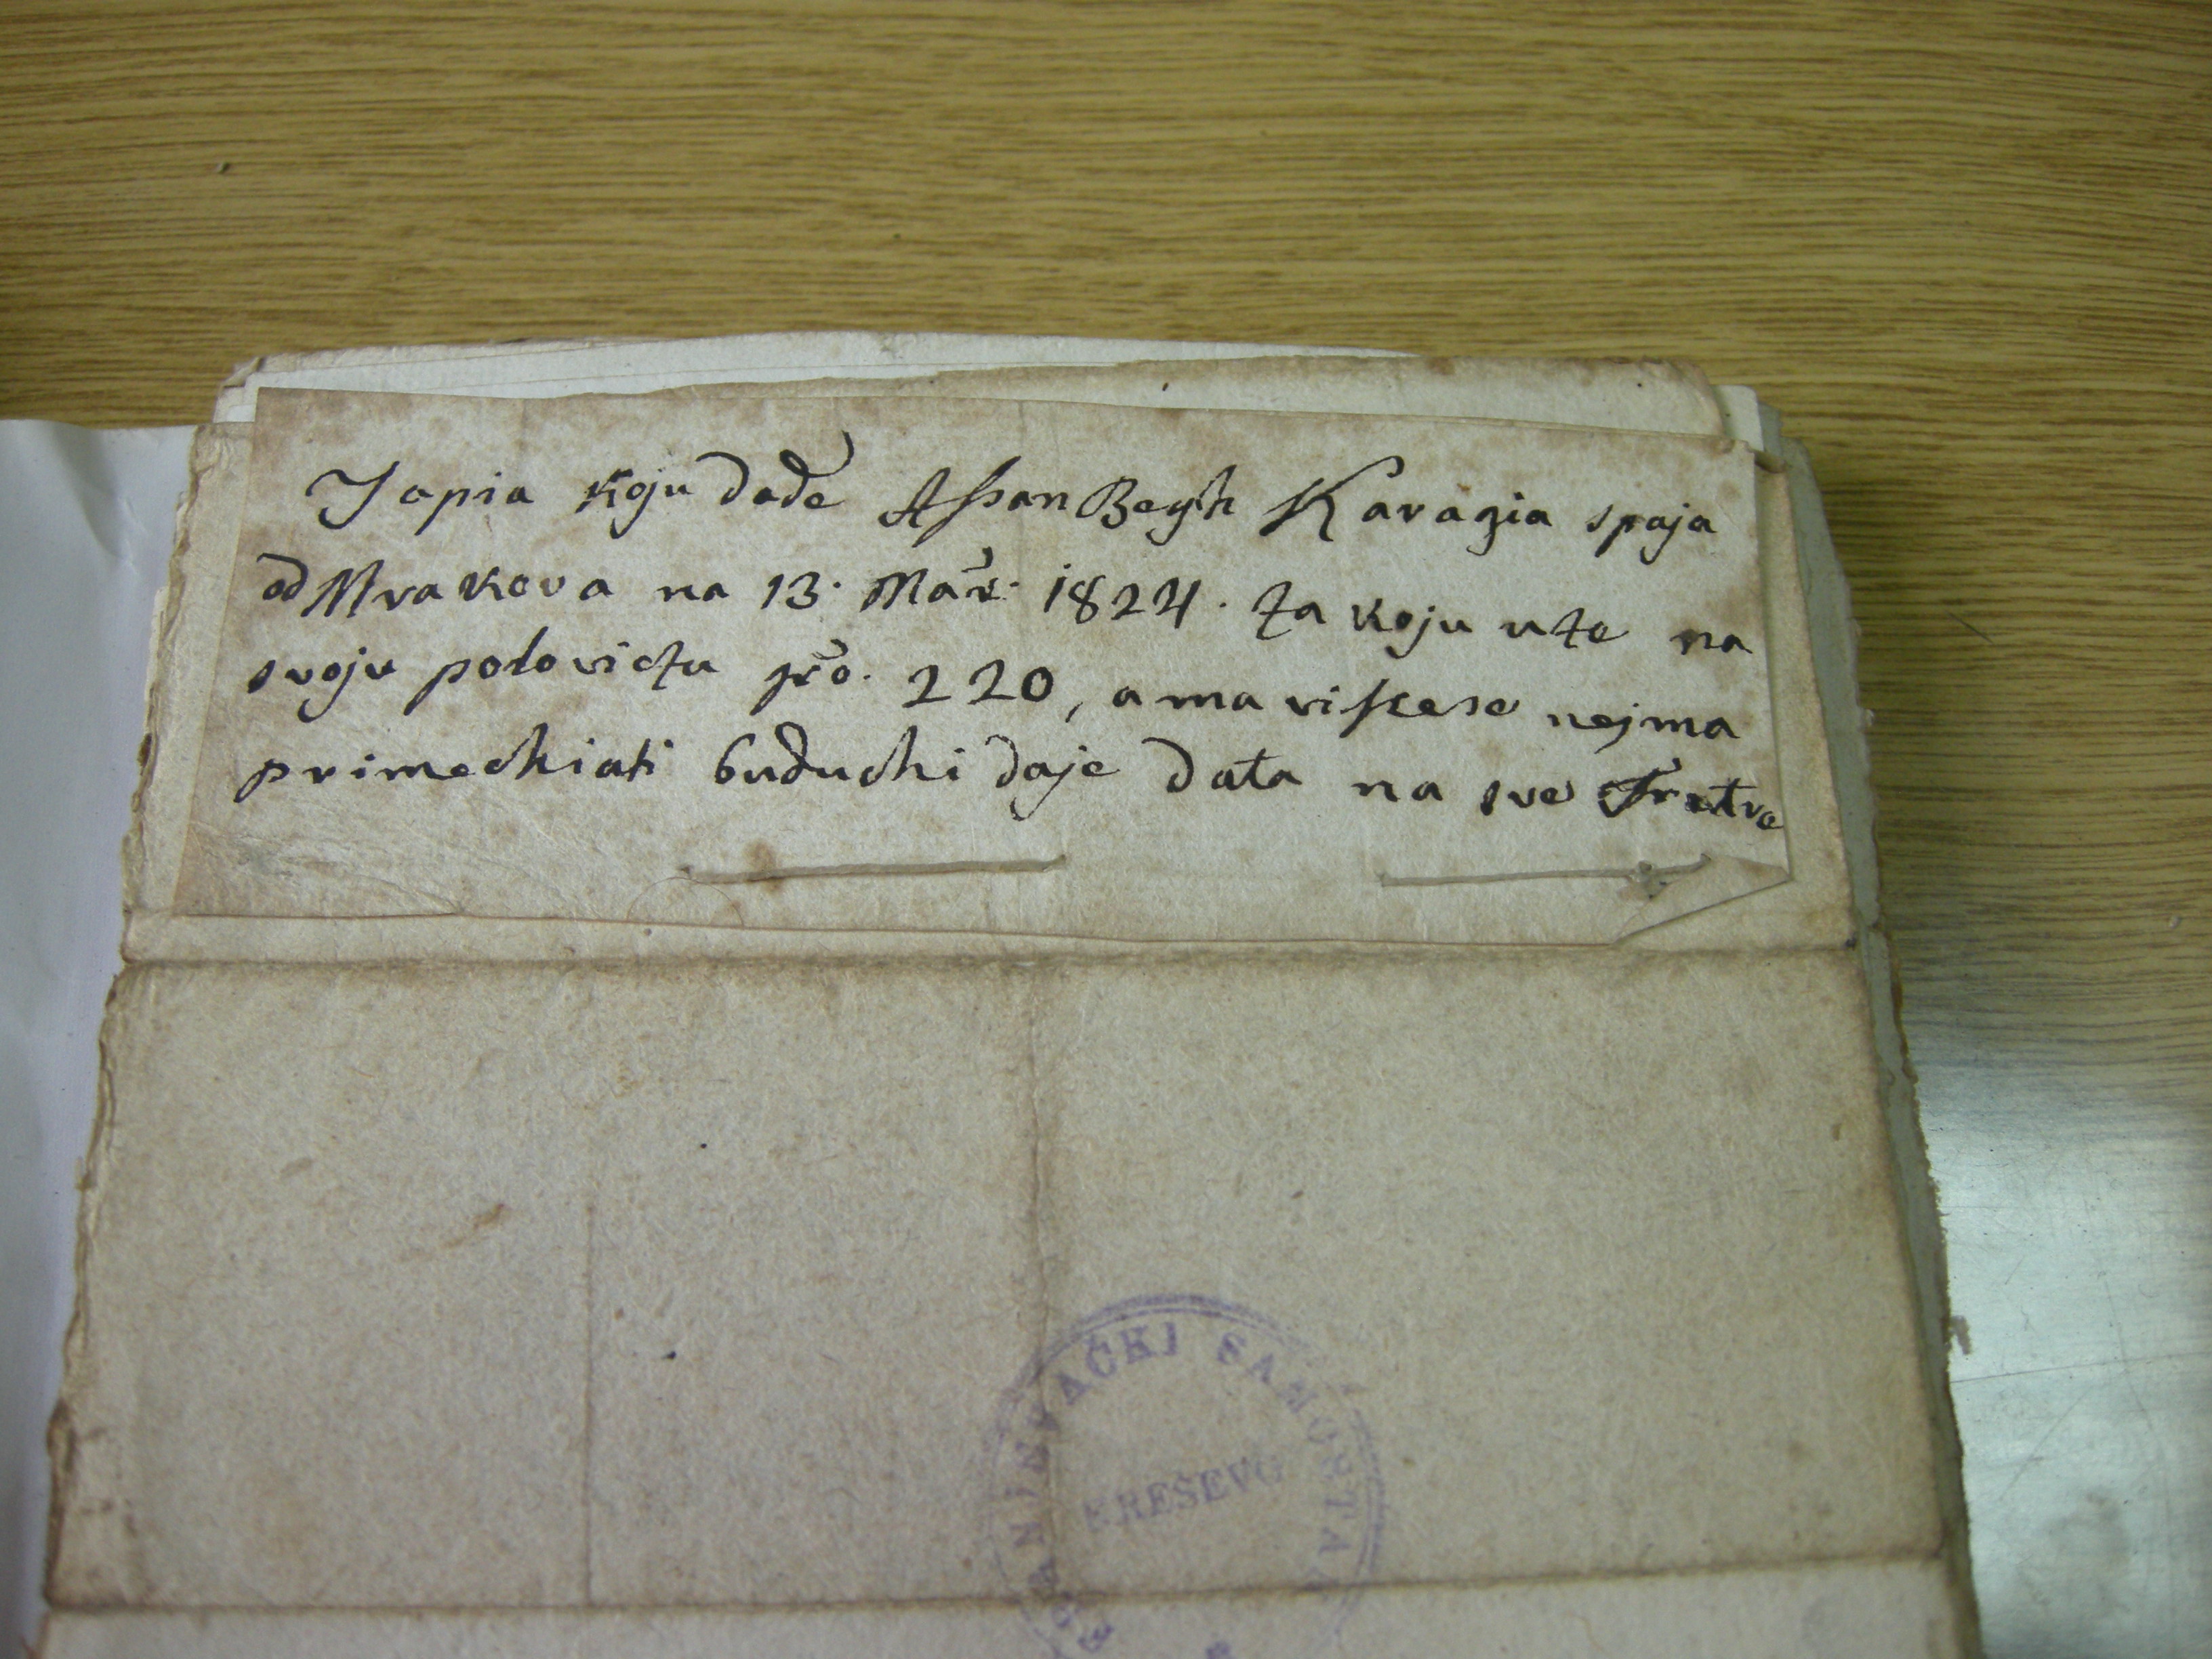 Tapia koju dade Assan Begh Karagia spaja
od Mrakova na 13. Mar. 1824. za koju uze na
svoju poloviczu gro. 220, a ma viscese nejma
primechiati buduchi daje data na sve Fratre
FRANJEVAČKI SAMOSTAN
KREŠEVO